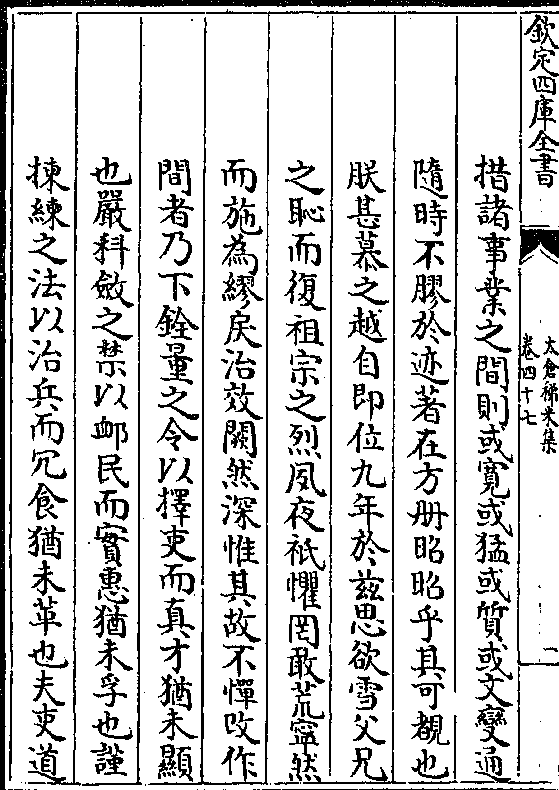 欽定四庫全書
太倉稊米集
卷四十七
一
措諸事業之間則或寛或猛或質或文變通
隨時不膠於迹著在方册昭昭乎其可覩也
朕甚慕之越自即位九年於兹思欲雪父兄
之恥而復祖宗之烈夙夜祇懼罔敢荒寧然
而施為繆戾治效闕然深惟其故不憚改作
間者乃下銓量之令以擇吏而真才猶未顯
也嚴科斂之禁以䘏民而實惠猶未孚也謹
揀練之法以治兵而冗食猶未革也夫吏道